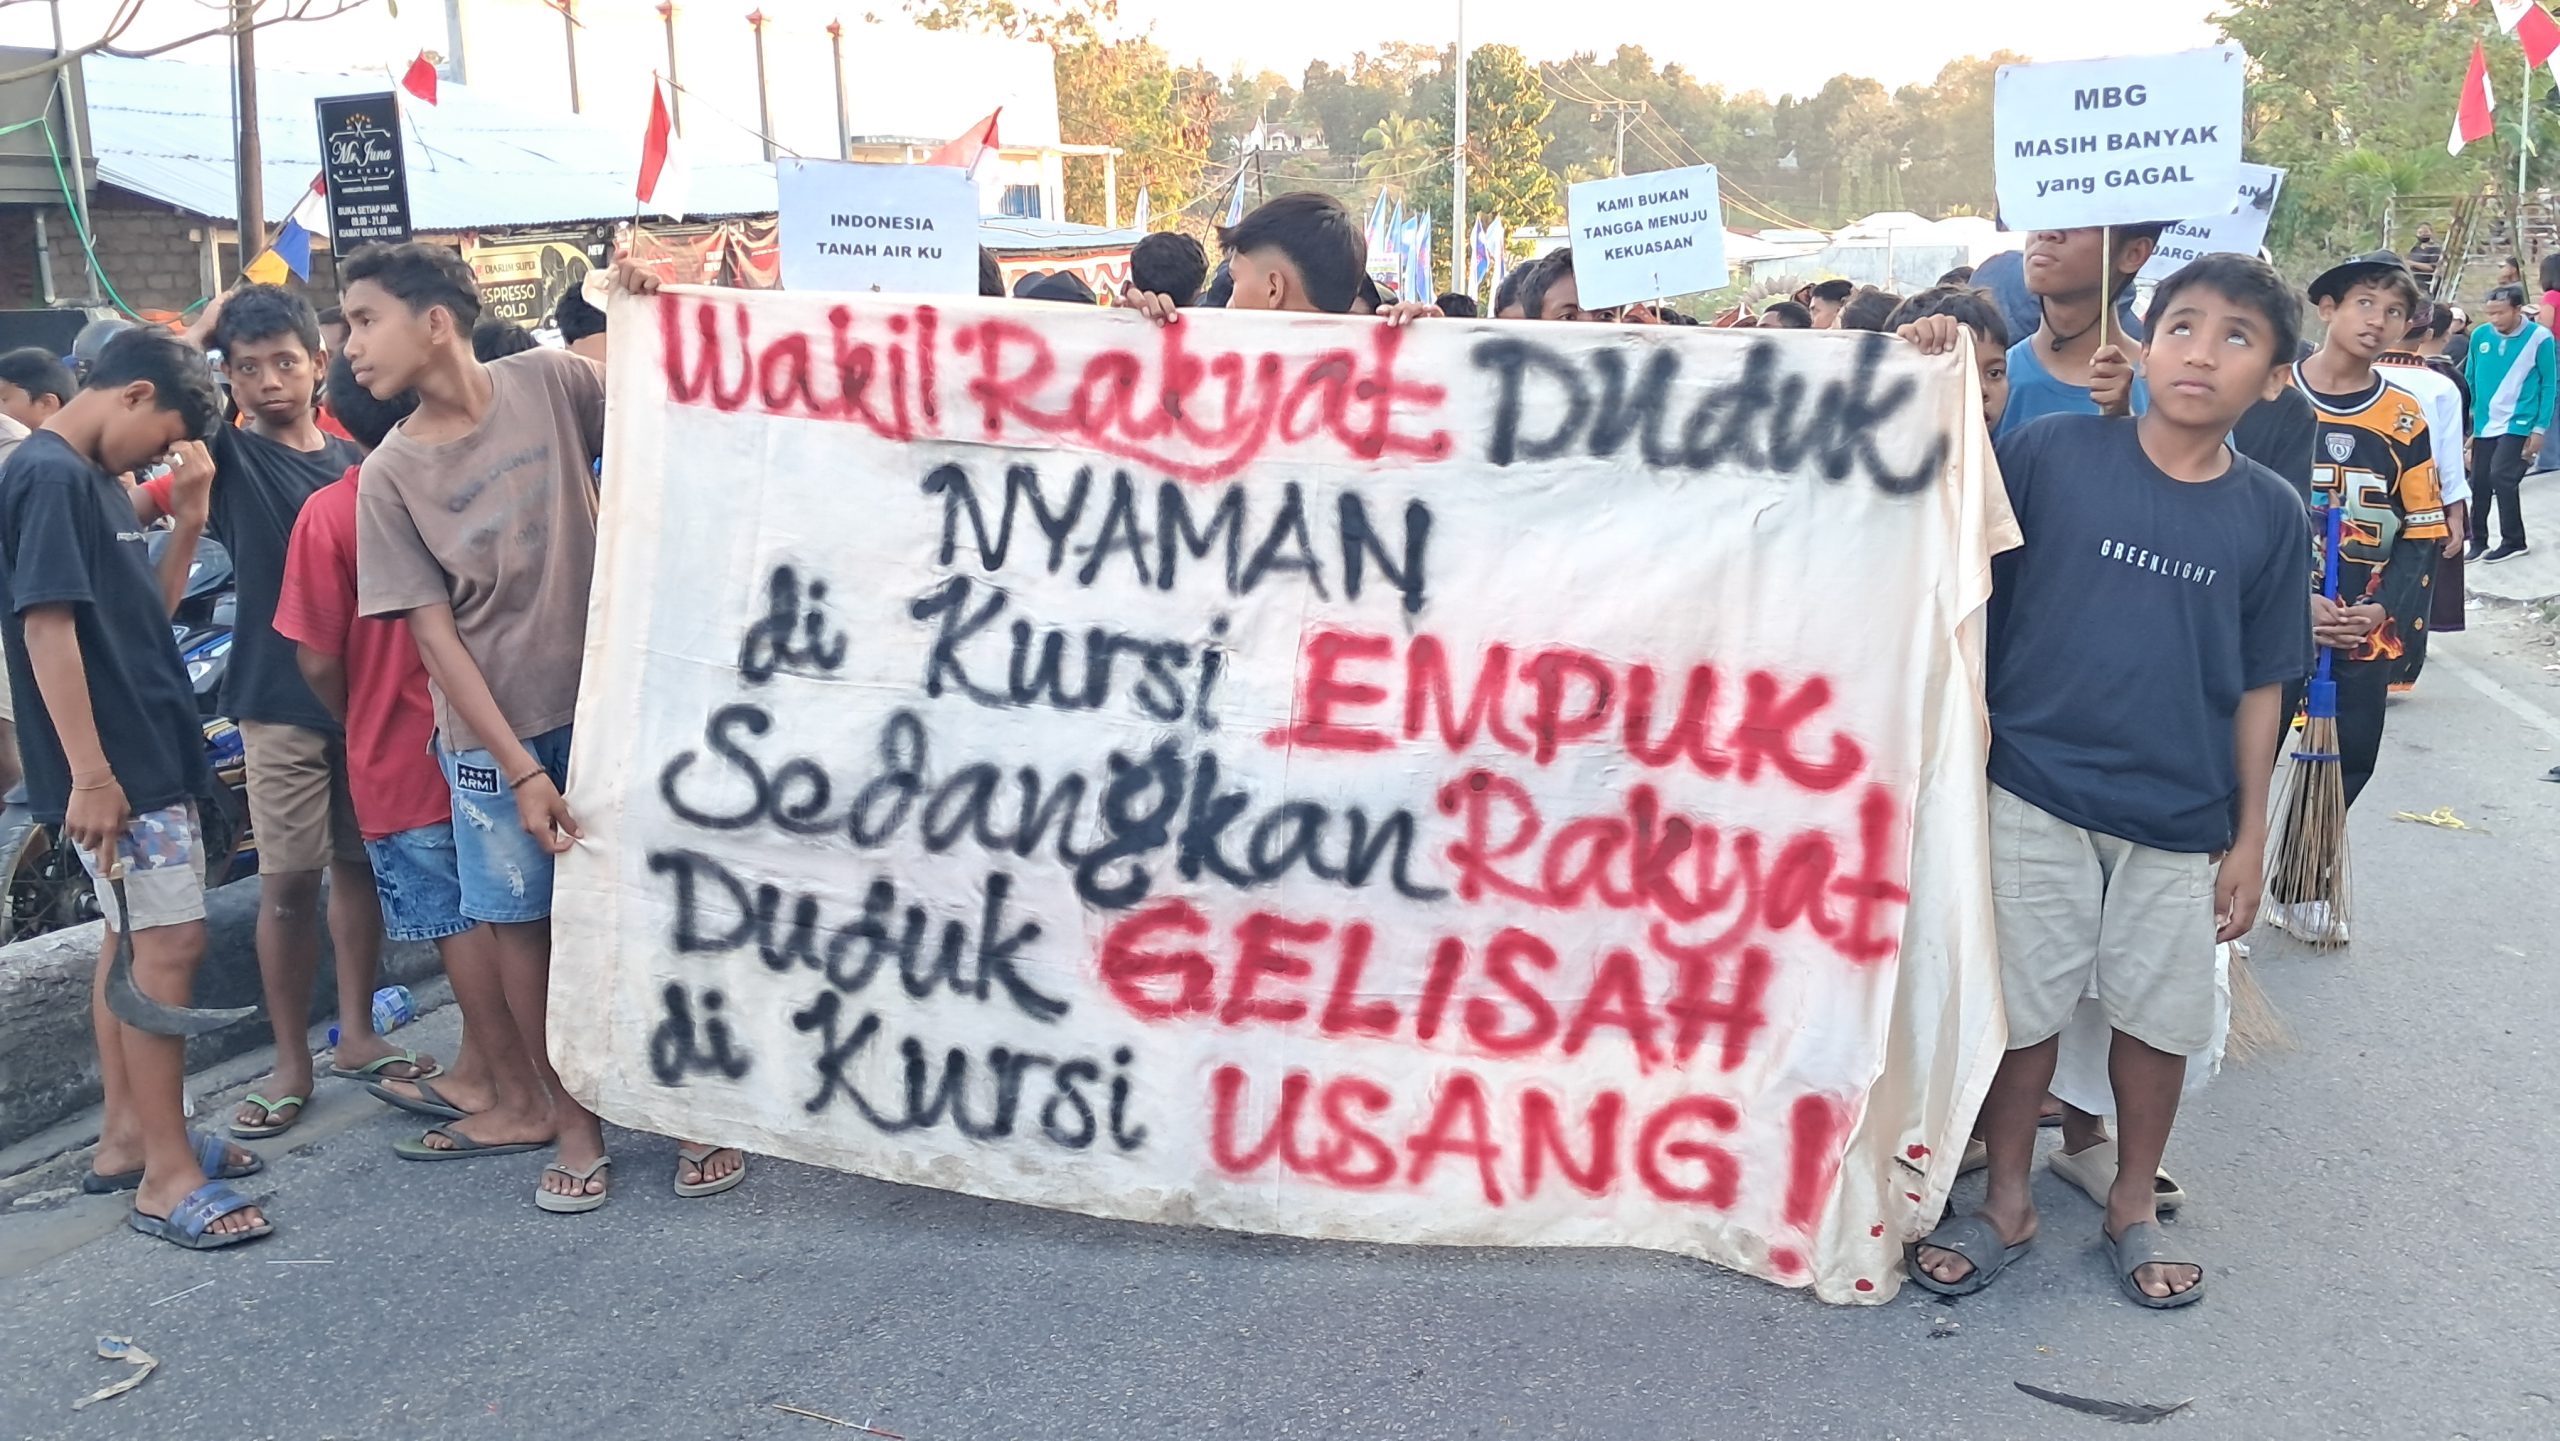 Mr. Juna
BARBER
BUKA SETIAP HARI.
09.00 - 21.00
KIAMAT BUKA 1/2 HARI
DJARUM SUPER
ESPRESSO
GOLD
NEW
INDONESIA
TANAH AIR KU
KAMI BUKAN
TANGGA MENUJU
KEKUASAAN
MBG
MASIH BANYAK
yang GAGAL
Wakil Rakyat Duduk
NYAMAN
di Kursi EMPUK
Sedangkan Rakyat
Duduk GELISAH
di Kursi USANG!
GREENLIGHT
ARMI